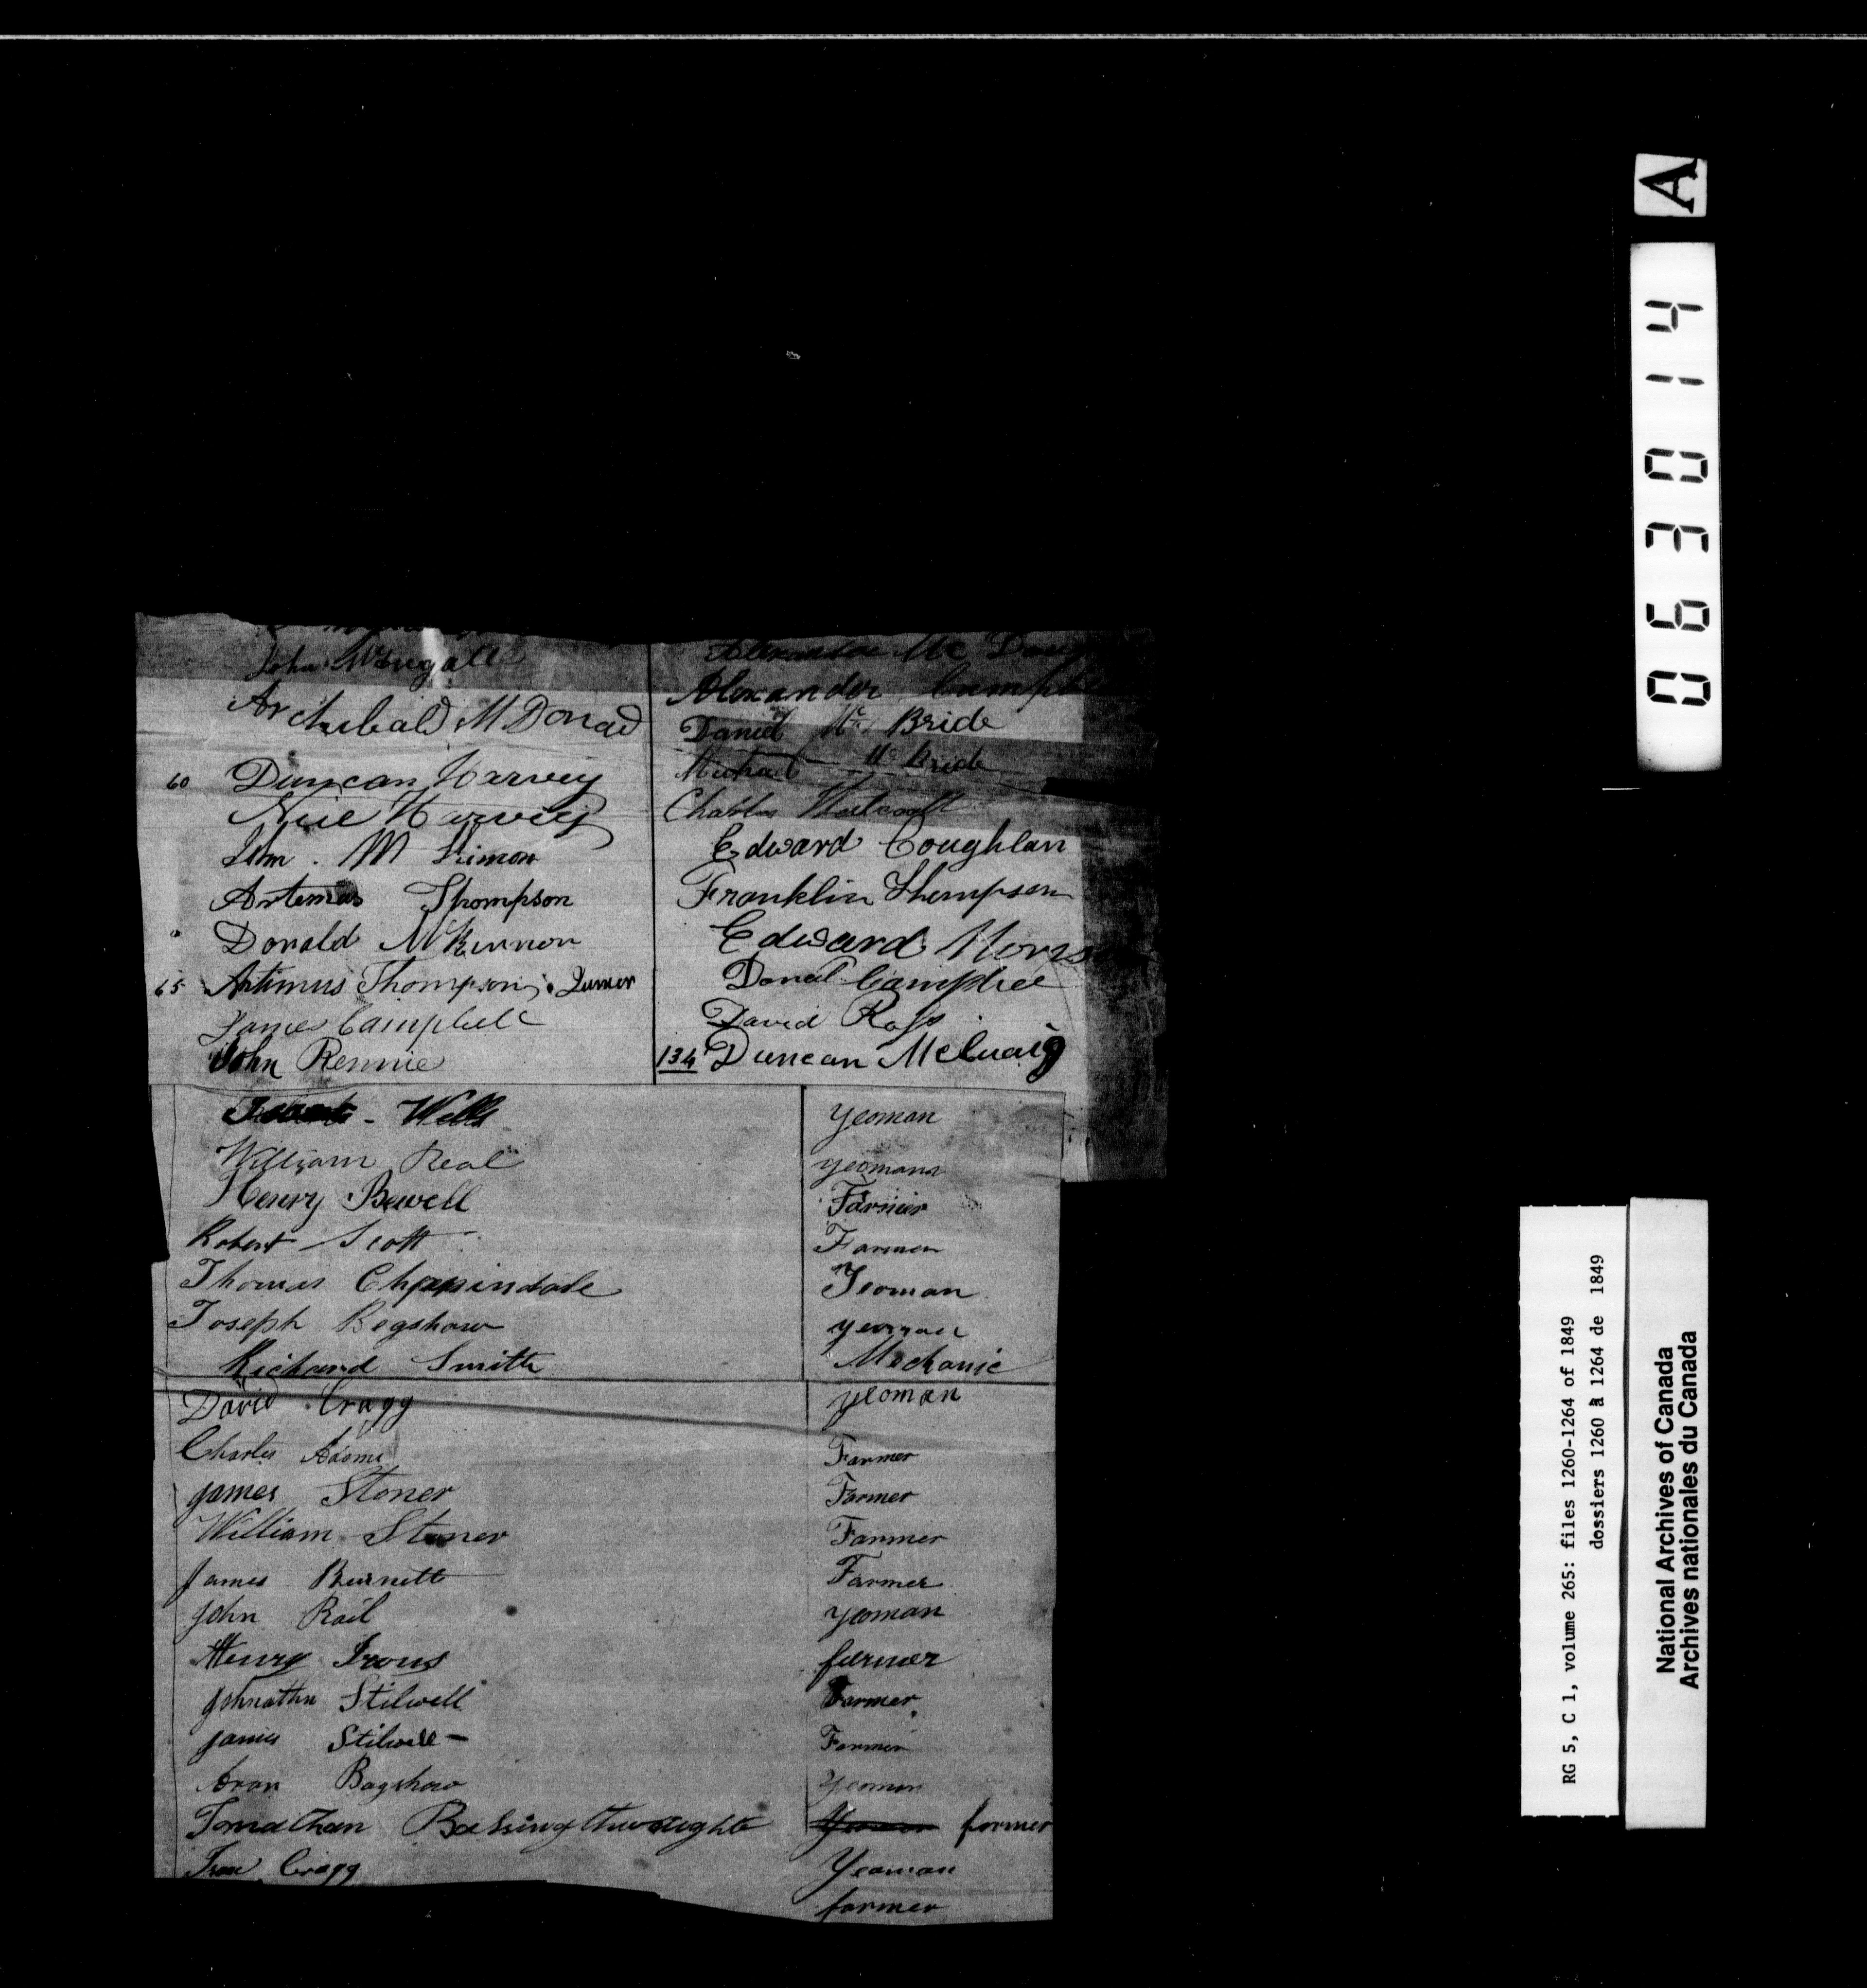 John McDugall
Archibald McDonad
60 Duncan Harvey
Neil Harvey
John . Mc Kimon
Artemas Thompson
Donald McKinnon
65 Artimus Thompson Juner
James Campbell
John Rennie
Alexander Mc Doug
Alexander Campbe
Daniel Mc Bride
Michael Mc Bride
Charles
Edward Coughlan
Franklin Thompson
Edward Morris
Donal Campbel
David Ross
134 Duncan McCuaig
- Wells yeoman
William Real yeoman
Henry Bewell Farmer
Robert Scott Farmer
Thomas Yeoman
Joseph Bagshaw yeoman
Richard Smith Mechanic
David Cragg yeoman
Charles Adams Farmer
James Stoner Farmer
William Stoner Farmer
James Burnett Farmer
John Rail yeoman
Henry Irons farmer
Johnathn Stilwell Farmer
James Stilwell - Farmer
Aron Bagshaw Yeoman
Jonathan farmer
Cragg Yeoman
farmer
A
063014
RG 5, C 1, volume 265: files 1260-1264 of 1849
dossiers 1260 à 1264 de 1849
National Archives of Canada
Archives nationales du Canada